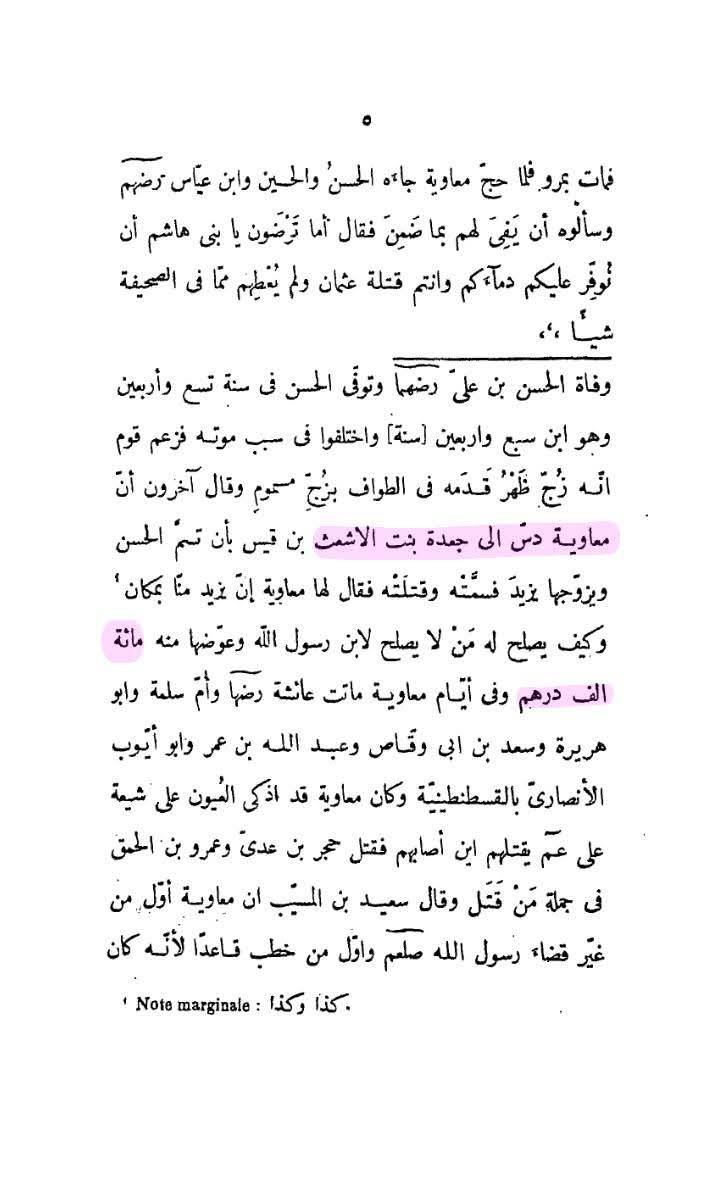 ٥
فمات بمرو فلما حجّ معاوية جاءه الحسنُ والحسين وابن عبّاس رضهم
وسألوه أن يَفِىَ لهم بما ضَمِنَ فقال أما تَرْضَون يا بنى هاشم أن
نُوفِّر عليكم دمآءكم وانتم قتلة عثمان ولم يُعْطِهم ممّا فى الصحيفة
شيـأً ،’،
وفاة الحسن بن علىّ رضهما وتوفّى الحسن فى سنة تسع وأربعين
وهو ابن سبع واربعين [سنة] واختلفوا فى سبب موته فزعم قوم
انّه زُجّ ظَهْرُ قَدَمه فى الطواف بزُجّ مسموم وقال آخرون أنّ
معاوية دسّ الى جعدة بنت الاشعث بن قيس بأن تسمَّ الحسن
ويزوّجها يزيدَ فسمَّتْه وقتلَتْه فقال لها معاوية إنّ يزيد منّا بمكان ¹
وكيف يصلح له مَنْ لا يصلح لابن رسول اللّه وعوّضها منه مائة
الف درهم وفى أيّام معاوية ماتت عائشة رضها وأمّ سلمة وابو
هريرة وسعد بن ابى وقّاص وعبد الله بن عمر وابو أيّوب
الأنصارىّ بالقسطنطينيّة وكان معاوية قد اذكى العُيون على شيعة
على عمّ يقتلهم اين أصابهم فقتل حجر بن عدىّ وعمرو بن الحمق
فى جملة مَنْ قَتَل وقال سعيد بن المسيّب ان معاوية أوّل من
غيّر قضاء رسول الله صلعم واوّل من خطب قاعدًا لأنّه كان
¹ Note marginale : كذا وكذا.